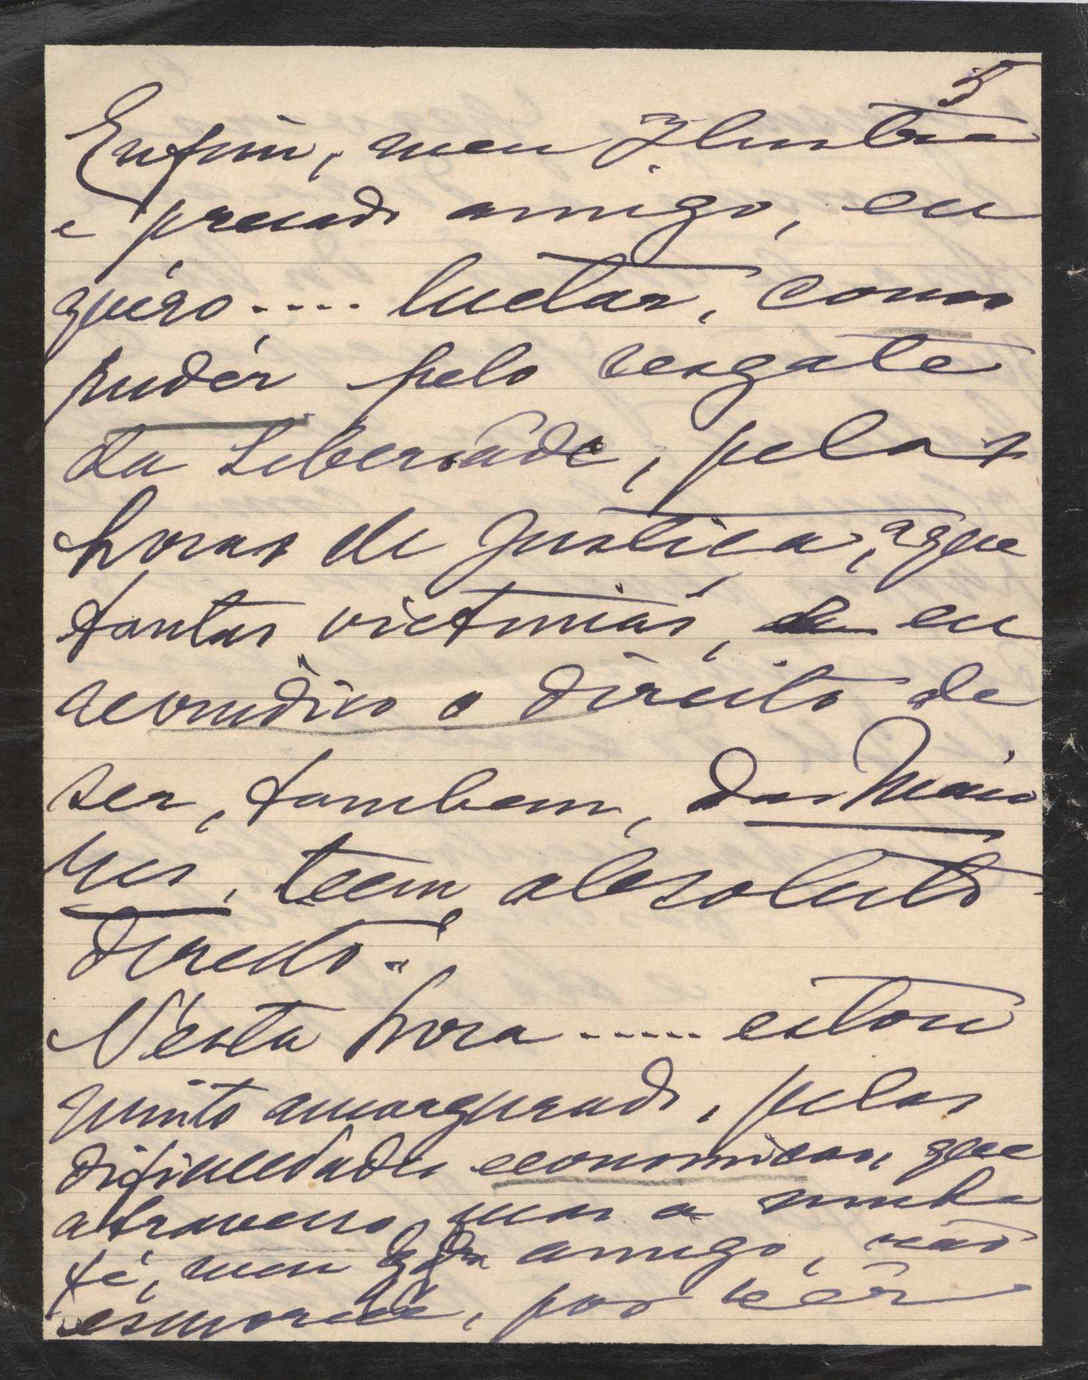 5
Enfim, meu Ilustre
e presado amigo, eu
quéro.... luctar, como
pudér pelo resgate
da Liberdade, pelas
horas de Justiça, a que
tantas victimas, eu
reivindico o direito de
ser, tambem, das Maio
res, teem absoluto
direito.
N'esta hora ..... estou
muito amargurado, pelas
dificuldades economicas, que
atravesso, mas a minha
fé, meu amigo, não
esmorece, por vêr